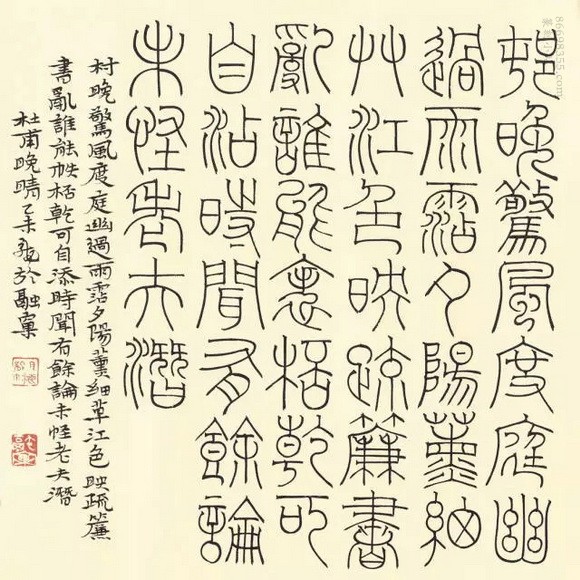 邨晚驚風度庭幽
過雨霑夕陽薰細
艸江色映疏簾書
亂誰能袠栝乾可
自沾時聞有餘論
未怪老夫潛
村晚驚風度庭幽過雨霑夕陽薰細草江色映疏簾
書亂誰能帙栝乾可自添時聞有餘論未怪老夫潛
杜甫晚晴乙未於融
86698355.com